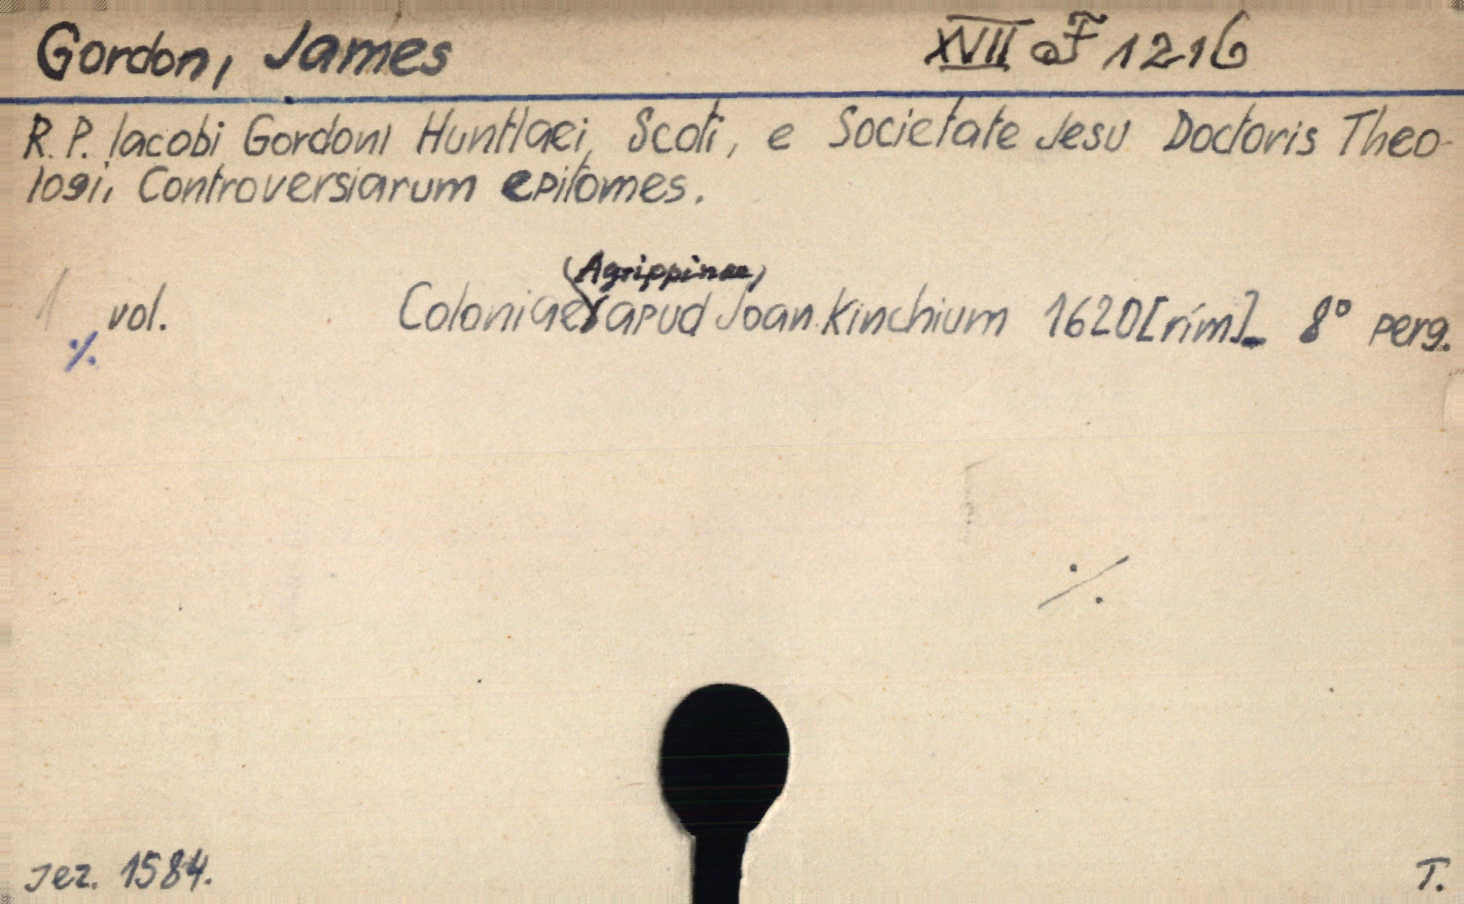 Gordon, James XVII a F 1216
R. P. Iacobi Gordoni Huntlaei, Scoti, e Societate Jesu Doctoris Theo-
logi, Controversiarum epitomes.
(Agrippinae)
1 vol. Coloniae apud Joan. Kinchium 1620 [rím]_ 8° perg.
%
%
Jez. 1584. T.